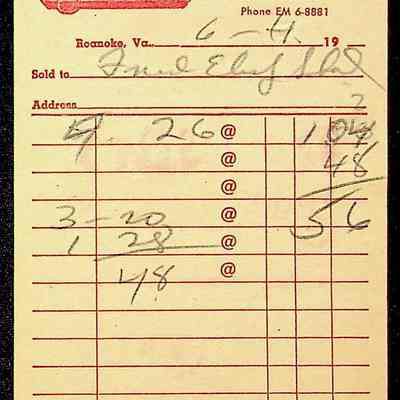 Phone EM 6-8881
Roanoke, Va. 6-4 19
Sold to
Address 2
4 26 @ 104
@ 48
@
3-20 @ 56
1 28 @
48 @